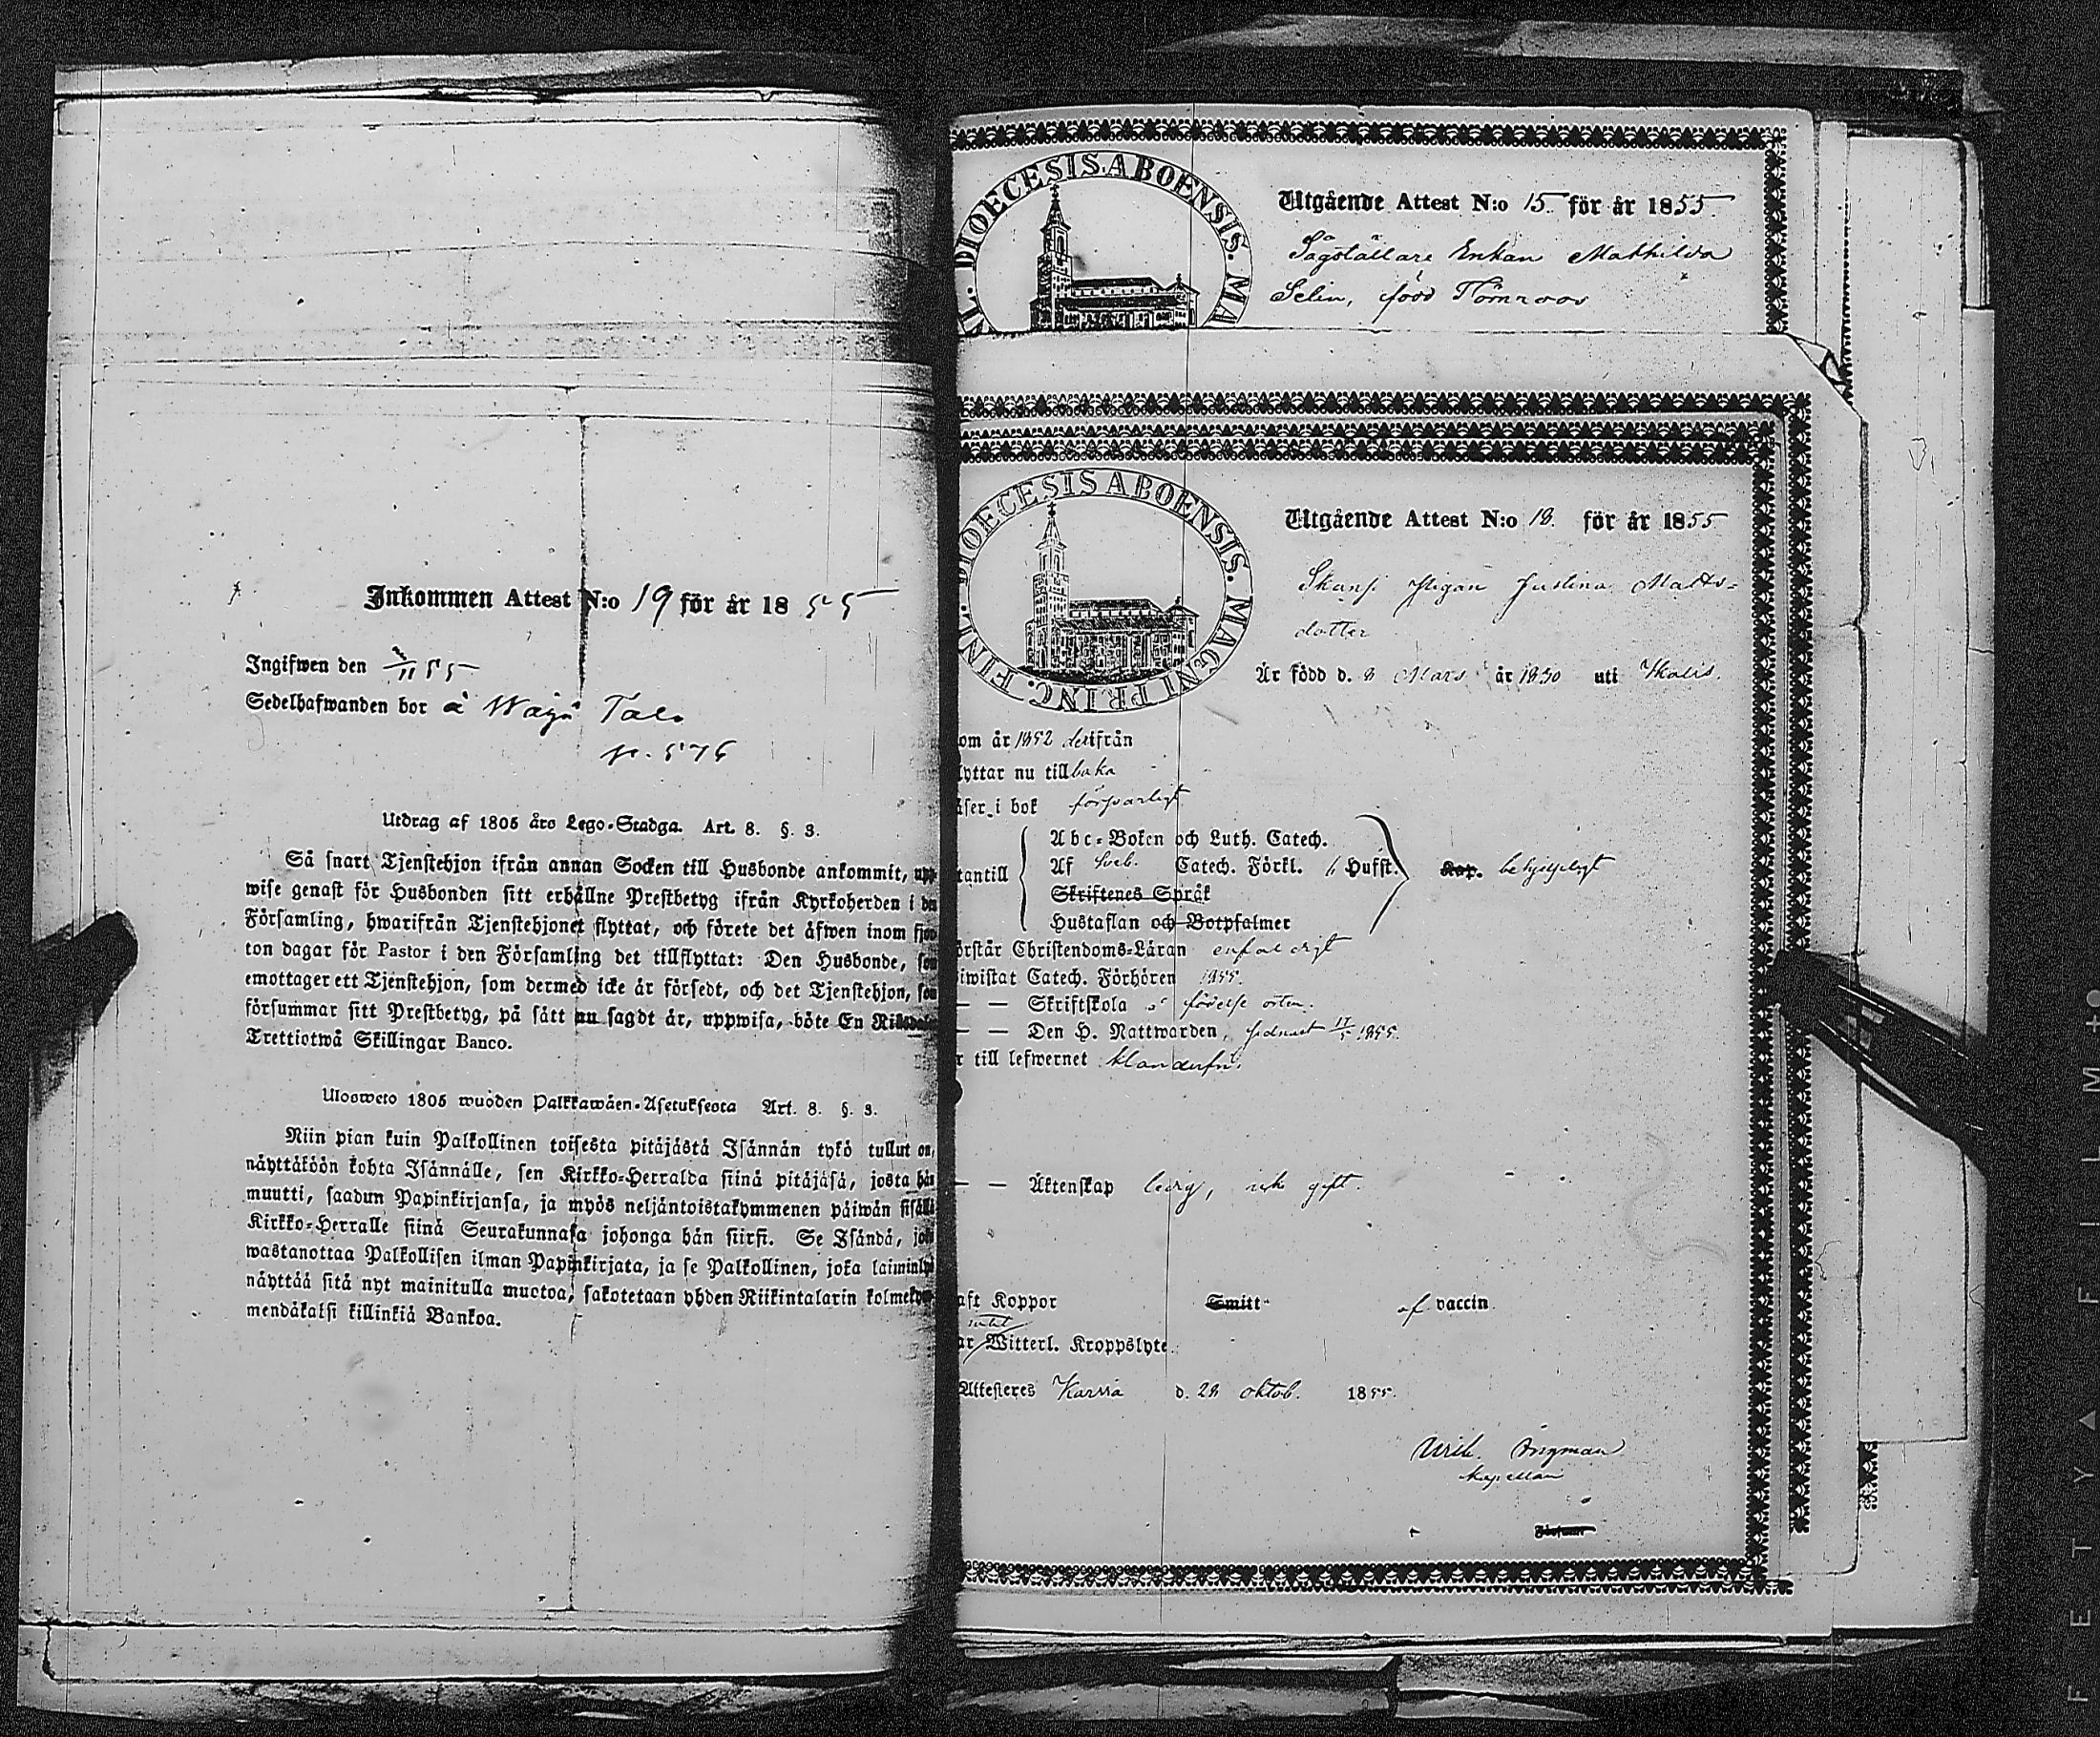 Inkommen Attest N:o 19 för år 1855
Ingifwen den /11 55
Sedelhafwanden bor å
p. 576
Utdrag af 1805 års Lego-Stadga. Art. 8. §. 3.
Så snart Tjenstehjon ifrån annan Socken till Husbonde ankommit, upp
wise genast för Husbonden sitt erhållne Prestbetyg ifrån Kyrkoherden i den
Församling, hwarifrån Tjenstehjonet flyttat, och förete det äfwen inom fjor
ton dagar för Pastor i den Församling det tillflyttat: Den Husbonde, som
emottager ett Tjenstehjon, som dermed icke är försedt, och det Tjenstehjon, som
försummar sitt Prestbetyg, på sätt nu sagdt är, uppwisa, böte En Riksdaler
Trettiotwå Skillingar Banco.
Ulosweto 1805 wuoden Palkkawäen-Asetuksesta Art. 8. §. 3.
Niin pian kuin Palkollinen toisesta pitäjästä Isännän tykö tullut on,
näyttäköön kohta Isännälle, sen Kirkko-Herralda siinä pitäjäsä, josta hän
muutti, saadun Papinkirjansa, ja myös neljäntoistakymmenen päiwän sisällä
Kirkko-Herralle siinä Seurakunnasa johonga hän siirsi. Se Isändä, joka
wastanottaa Palkollisen ilman Papinkirjata, ja se Palkollinen, joka laiminlyö
näyttää sitä nyt mainitulla muotoa, sakotetaan yhden Riikintalarin kolmekym
mendäkaksi killinkiä Bankoa.
L. DIOECESIS ABOENSIS. MA
Utgående Attest N:o 15. för år 1855.
Sågställare Enkan Mathilda
Selin, född Törnroos
FINL. DIOECESIS ABOENSIS. MAGNI PRINC.
Utgående Attest N:o 18. för år 1855
Skansj. Pigan Justina Matts-
dotter
Är född d. 8 Mars år 1830 uti
om år 1852 derifrån
lyttar nu tillbaka
äser i bok försvarligt
Abc-Boken och Luth. Catech.
tantill Af Sveb. Catech. Förkl. Hufst. Kap. behjelpligt
Skriftenes Språk
Hustaflan och Botpsalmer
örstår Christendoms-Läran enfaldigt
iwistat Catech. Förhören 1855.
— — Skriftskola födelse orten.
— — Den H. Nattwarden, sednast 17/5 1855.
r till lefwernet klanderfri.
— — Äktenskap ledig, icke gift.
aft Koppor Smitt af vaccin
intet
ar Witterl. Kroppslyte.
Attesteres Karria d. 28 oktob. 1855.
Ulrik Ingman
kapellan